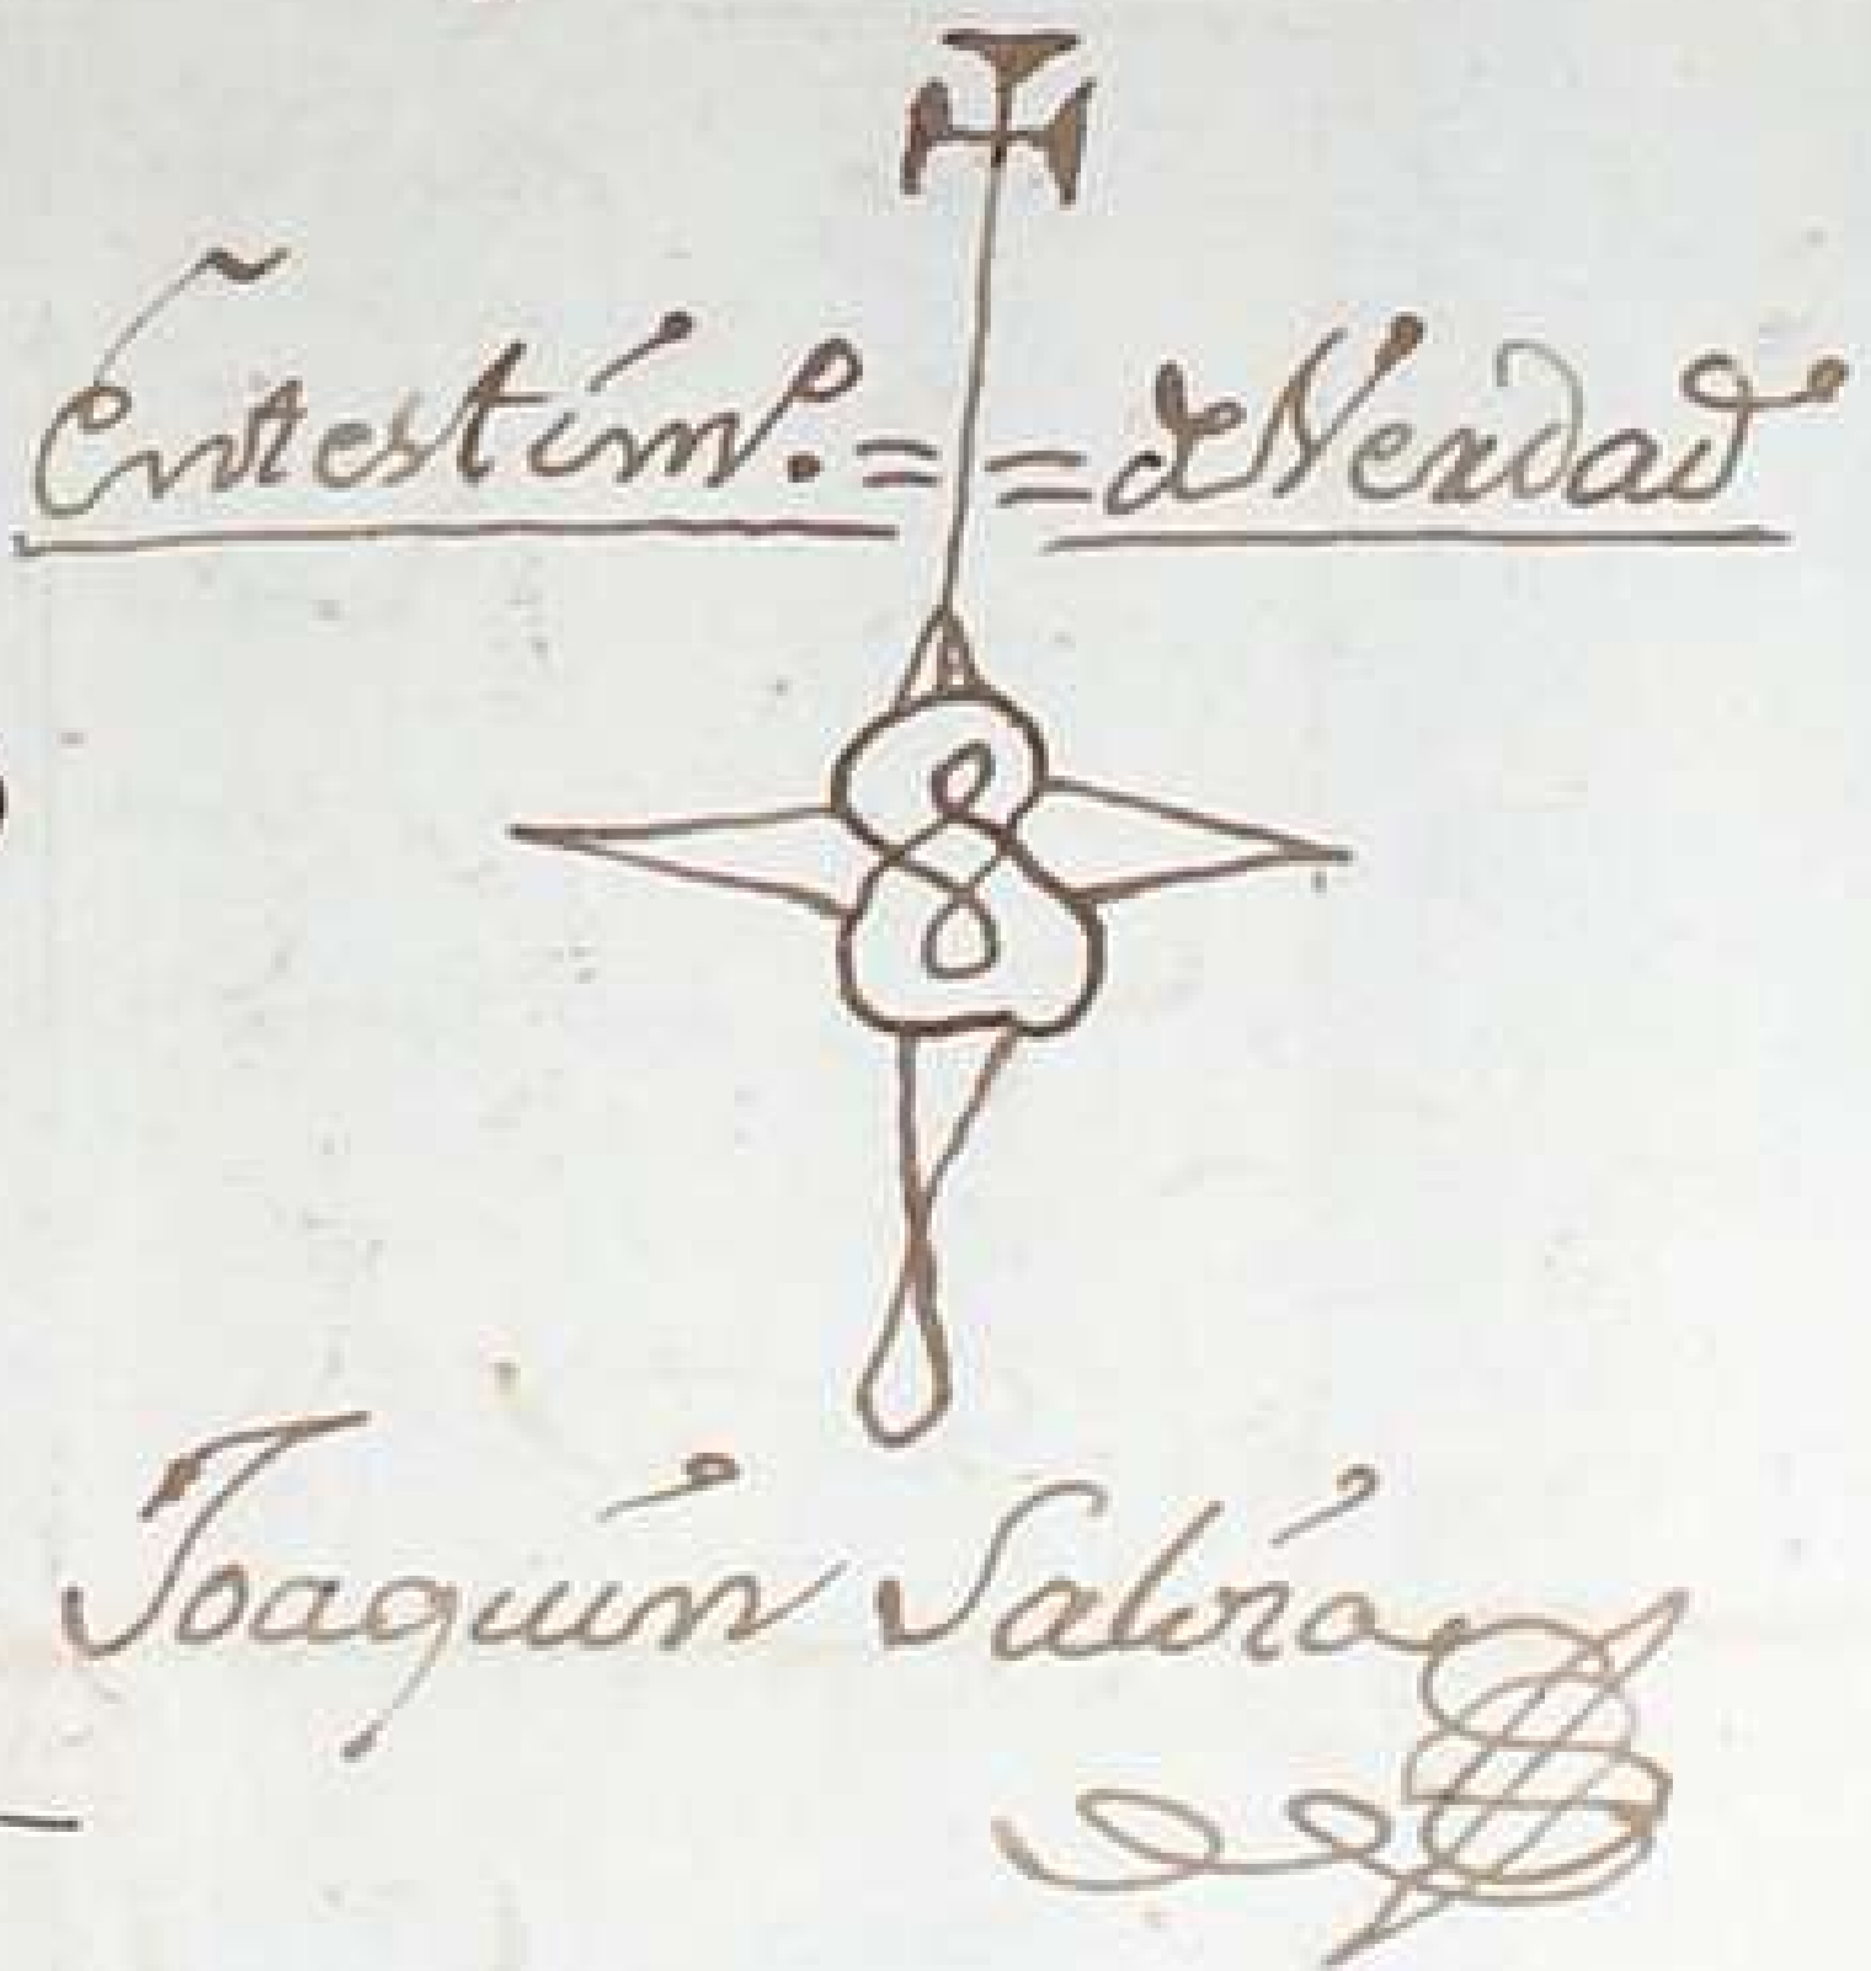 Entestim.º = = de Verdad
Joaquin Sabria